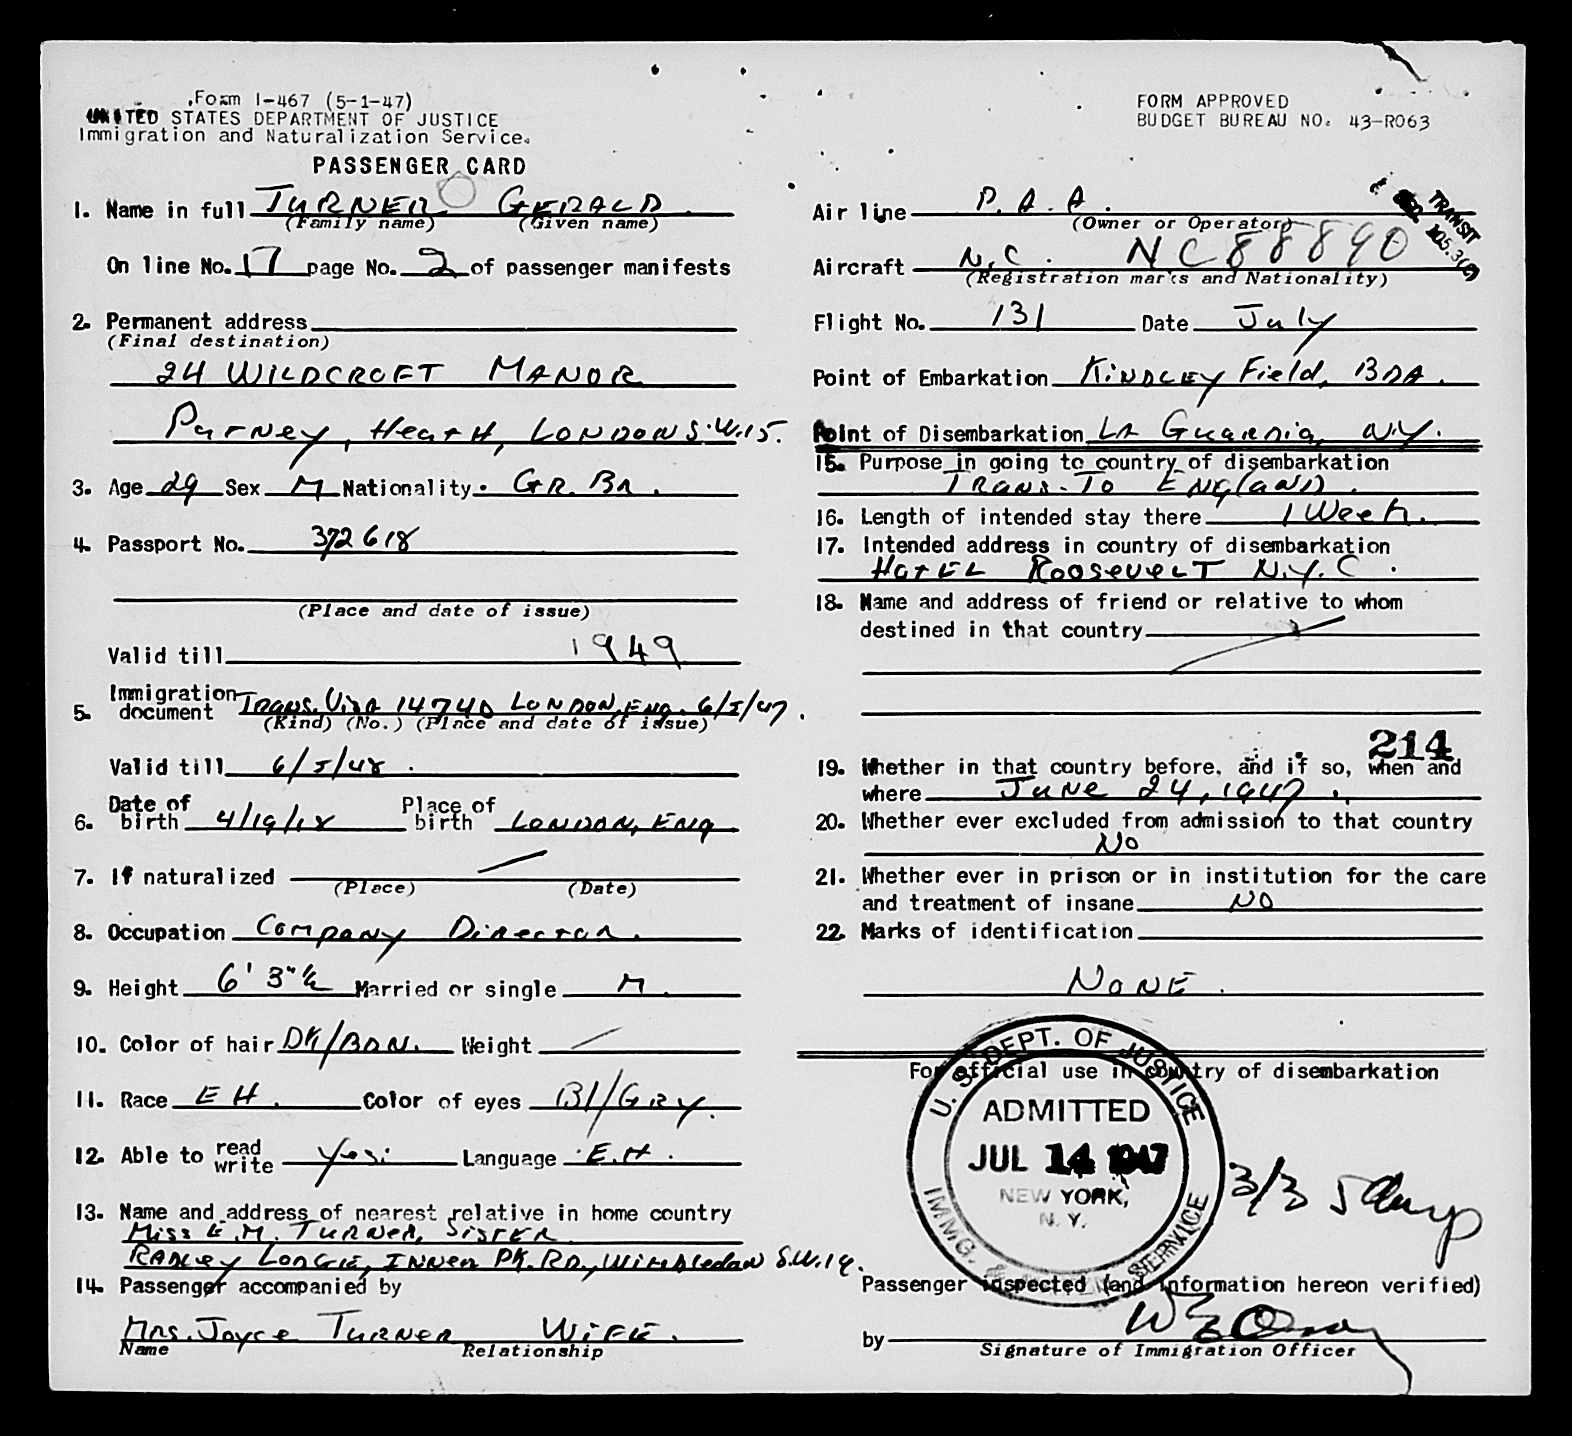 Form I-467 (5-1-47)
UNITED STATES DEPARTMENT OF JUSTICE
Immigration and Naturalization Service.
PASSENGER CARD
1. Name in full TURNER GERALD
(Family name) (Given name)
On line No. 17 page No. 2 of passenger manifests
2. Permanent address
(Final destination)
24 WILDCROFT MANOR
Putney, Heath, LONDON S.W.15.
3. Age 29 Sex M Nationality. GR. BR.
4. Passport No. 372618
(Place and date of issue)
Valid till 1949
5. Immigration document Trans. Visa 14740 LONDON, ENG. 6/5/47.
(Kind) (No.) (Place and date of issue)
Valid till 6/5/48.
6. Date of birth 4/19/18 Place of birth LONDON, ENG
7. If naturalized
(Place) (Date)
8. Occupation Company Director.
9. Height 6' 3"½ Married or single M.
10. Color of hair DK/BRN. Weight
11. Race EH. Color of eyes Bl/GRY.
12. Able to read write Yes. Language E.H.
13. Name and address of nearest relative in home country
Miss E.M. TURNER, SISTER
RADLEY LODGE, INNER PK. RD., WIMBLEDON S.W.19.
14. Passenger accompanied by
Mrs. Joyce TURNER WIFE.
Name Relationship
FORM APPROVED
BUDGET BUREAU NO. 43-R063
TRANSIT
105.3(c)
Air line P.A.A.
(Owner or Operator)
Aircraft N.C. NC88890
(Registration marks and Nationality)
Flight No. 131 Date July
Point of Embarkation KINDLEY Field, BDA.
Point of Disembarkation LA GUARDIA, N.Y.
15. Purpose in going to country of disembarkation
TRANS. TO ENGLAND.
16. Length of intended stay there 1 Week.
17. Intended address in country of disembarkation
HOTEL ROOSEVELT N.Y.C.
18. Name and address of friend or relative to whom
destined in that country
214
19. Whether in that country before, and if so, when and
where June 24, 1947.
20. Whether ever excluded from admission to that country
No
21. Whether ever in prison or in institution for the care
and treatment of insane NO
22. Marks of identification
NONE.
For official use in country of disembarkation
U. S. DEPT. OF JUSTICE
ADMITTED
JUL 14 1947
NEW YORK,
N. Y.
IMMG. & SERVICE
3/3 5 days
Passenger inspected (and information hereon verified)
by
Signature of Immigration Officer